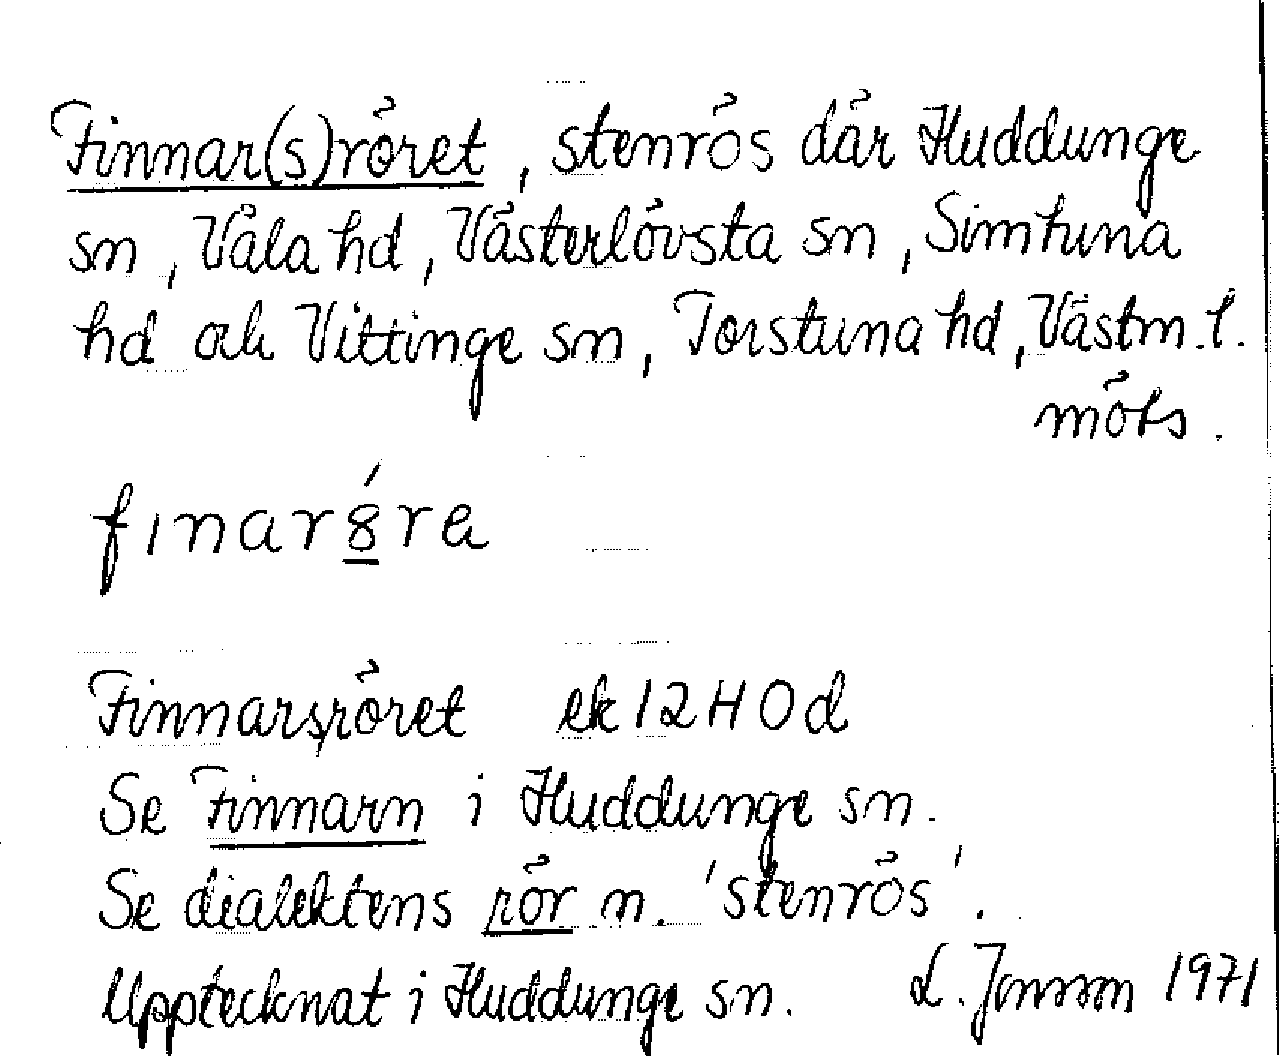 Finnar(s)röret, stenrös där Huddunge
sn, Våla hd, Västerlövsta sn, Simtuna
hd och Vittinge sn, Torstuna hd, Västm. l.
möts.
finarȣ́re
Finnarsröret ek 12H0d
Se Finnarn i Huddunge sn.
Se dialektens rör n. 'stenrös'.
Upptecknat i Huddunge sn. L. Jonson 1971